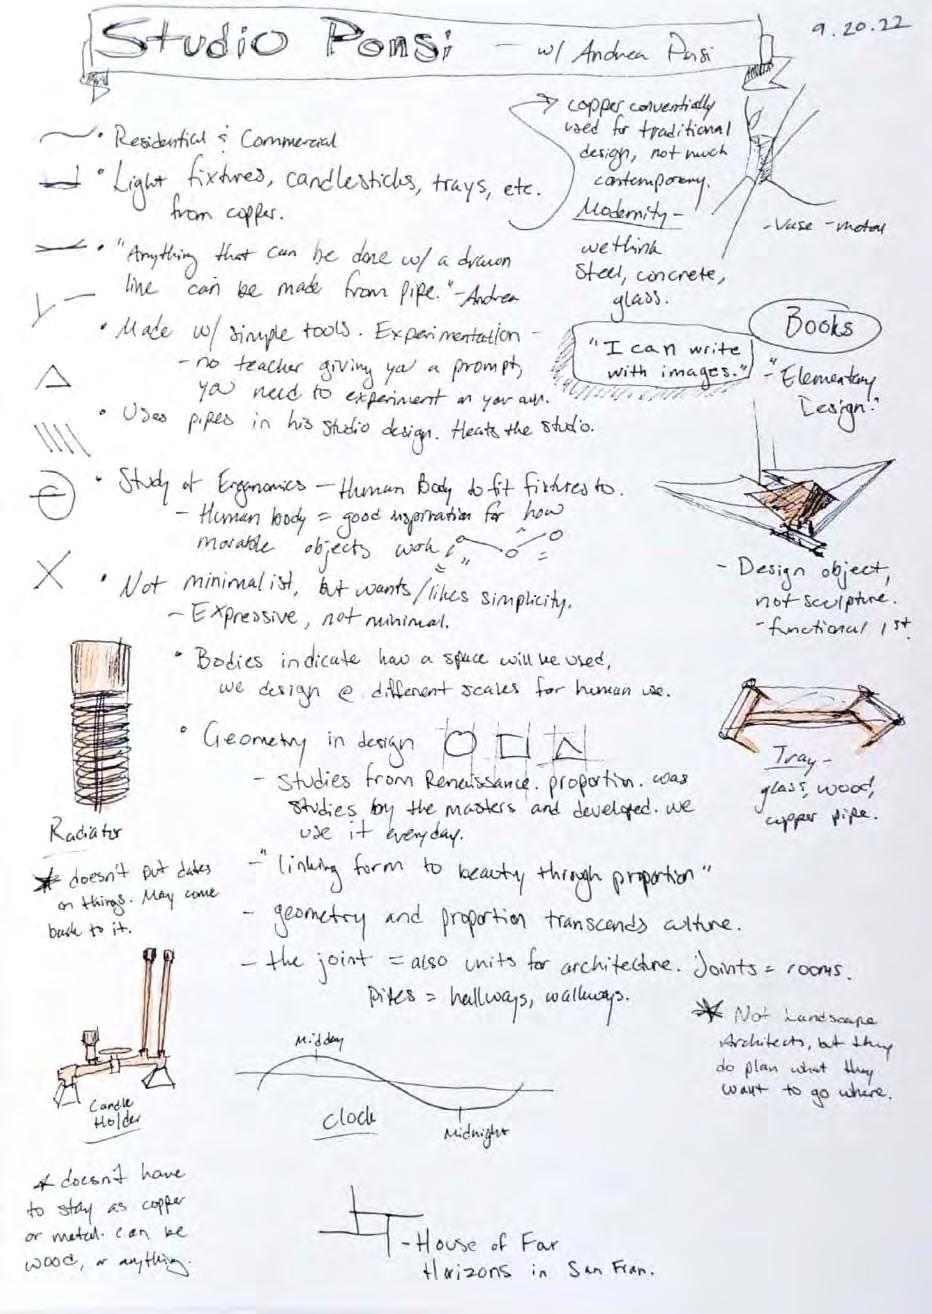 Studio Ponsi - w/ Andrea Ponsi
9.20.22
• Residential & Commercial
• Light fixtures, candlesticks, trays, etc.
from copper.
→ copper conventially
used for traditional
design, not much
contemporary.
Modernity -
we think
steel, concrete,
glass.
- Vase - metal
• "Anything that can be done w/ a drawn
line can be made from pipe." - Andrea
• Made w/ simple tools. Experimentation -
- no teacher giving you a prompt,
you need to experiment on your own.
• Uses pipes in his studio design. Heats the studio.
"I can write
with images."
Books
- "Elementary
Design."
• Study of Ergonomics - Human Body to fit fixtures to.
- Human body = good inspiration for how
movable objects work
• Not minimalist, but wants/likes simplicity.
- Expressive, not minimal.
- Design object,
not sculpture.
- functional 1st.
• Bodies indicate how a space will be used,
we design @ different scales for human use.
• Geometry in design
- studies from Renaissance. proportion. was
studies by the masters and developed. we
use it everyday.
- "linking form to beauty through proportion"
- geometry and proportion transcends culture.
- the joint = also units for architecture. Joints = rooms.
Pipes = hallways, walkways.
Tray -
glass, wood,
copper pipe.
Radiator
* doesn't put dates
on things. May come
back to it.
* Not Landscape
Architects, but they
do plan what they
want to go where.
Candle
Holder
Midday
Clock
Midnight
* doesn't have
to stay as copper
or metal. can be
wood, or anything.
- House of Far
Horizons in San Fran.